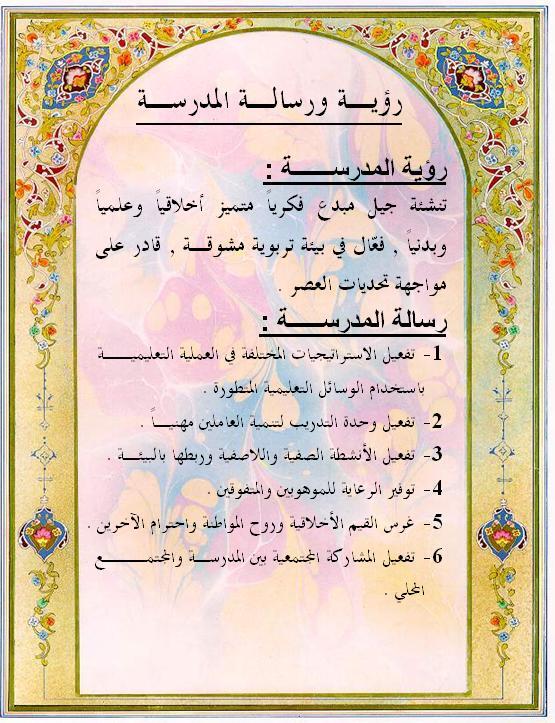 رؤية ورسالة المدرسة
رؤية المدرسة :
تنشئة جيل مبدع فكرياً متميز أخلاقياً وعلمياً
وبدنياً , فعّال في بيئة تربوية مشوقة , قادر على
مواجهة تحديات العصر .
رسالة المدرسة :
1- تفعيل الاستراتيجيات المختلفة في العملية التعليمية
باستخدام الوسائل التعليمية المتطورة .
2- تفعيل وحدة التدريب لتنمية العاملين مهنياً .
3- تفعيل الأنشطة الصفية واللاصفية وربطها بالبيئة .
4- توفير الرعاية للموهوبين والمتفوقين .
5- غرس القيم الأخلاقية وروح المواطنة واحترام الآخرين .
6- تفعيل المشاركة المجتمعية بين المدرسة والمجتمع
المحلي .